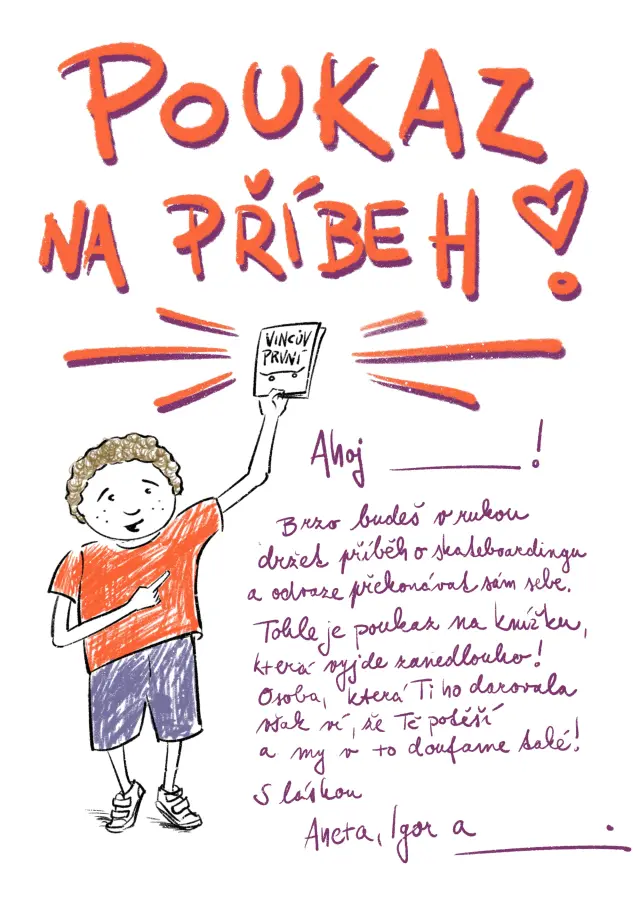 POUKAZ
NA PŘÍBEH!
VINCŮV
PRVNÍ
Ahoj ________!
Brzo budeš v rukou
držet příběh o skateboardingu
a odvaze překonávat sám sebe.
Tohle je poukaz na knížku,
která vyjde zanedlouho!
Osoba, která Ti ho darovala
však ví, že Tě potěší
a my v to doufáme také!
S láskou
Aneta, Igor a ________.